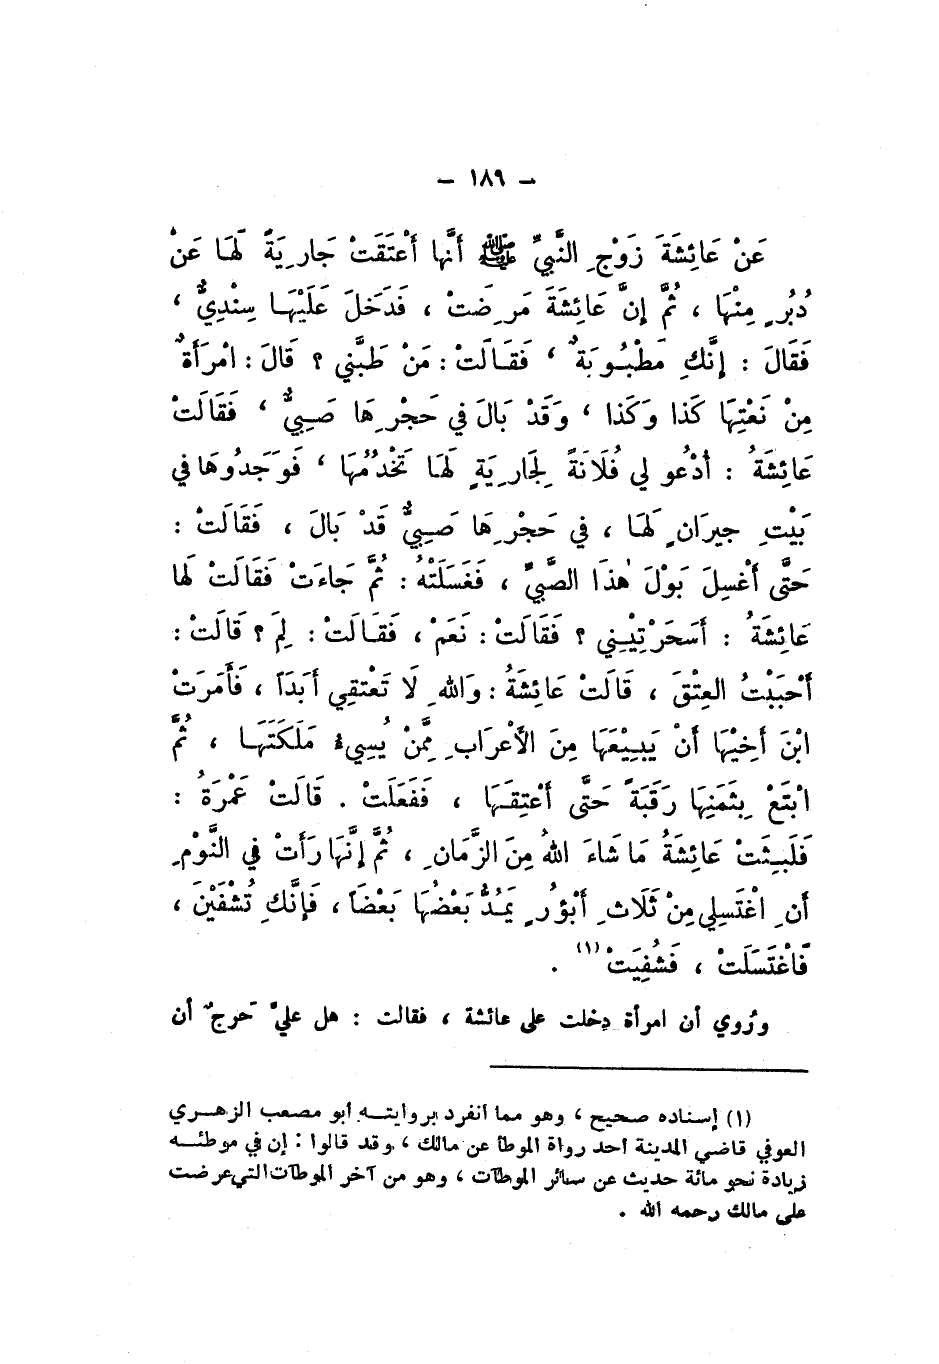 — ١٨٩ —
عَنْ عَائِشَةَ زَوْجِ النَّبِيِّ ﷺ أَنَّها أَعْتَقَتْ جَارِيَةً لَهَا عَنْ
دُبُرٍ مِنْهَا ، ثُمَّ إِنَّ عَائِشَةَ مَرِضَتْ ، فَدَخَلَ عَلَيْهَا سِنْدِيٌّ ،
فَقَالَ : إِنَّكِ مَطْبُوبَةٌ ، فَقَالَتْ : مَنْ طَبَّني ؟ قَالَ : امْرَأَةٌ
مِنْ نَعْتِهَا كَذا وَكَذا ، وَقَدْ بَالَ في حَجْرِهَا صَبِيٌّ ، فَقَالَتْ
عَائِشَةُ : أدْعُو لي فُلَانَةً لِجَارِيَةٍ لَهَا تَخْدُمُهَا ، فَوَجَدُوهَا في
بَيْتِ جيرَانٍ لَهَا ، في حَجْرِهَا صَبِيٌّ قَدْ بَالَ ، فَقَالَتْ :
حَتَّى أَغْسِلَ بَوْلَ هٰذَا الصَّبِيِّ ، فَغَسَلَتْهُ : ثُمَّ جَاءَتْ فَقَالَتْ لَها
عَائِشَةُ : أَسَحَرْتِيْنِي ؟ فَقَالَتْ : نَعَمْ ، فَقَالَتْ : لِمَ ؟ قَالَتْ :
أَحْبَبْتُ العِتْقَ ، قَالَتْ عَائِشَةُ : وَاللهِ لَا تَعْتِقِي أَبَدَاً ، فَأَمَرَتْ
ابْنَ أَخِيْهَا أَنْ يَبِيْعَهَا مِنَ الأَعْرَابِ مِمَّنْ يُسِيءُ مَلَكَتَهَا ، ثُمَّ
ابْتَعْ بِثَمَنِهَا رَقَبَةً حَتَّى أُعْتِقَهَا ، فَفَعَلَتْ . قَالَتْ عَمْرَةُ :
فَلَبِثَتْ عَائِشَةُ مَا شَاءَ اللهُ مِنَ الزَّمَانِ ، ثُمَّ إِنَّهَا رَأَتْ في النَّوْمِ
أَنِ اغْتَسِلِي مِنْ ثَلَاثِ أَبْؤُرٍ يَمُدُّ بَعْضُهَا بَعْضَاً ، فَإِنَّكِ تُشْفَيْنَ ،
فَاغْتَسَلَتْ ، فَشُفِيَتْ (١) .
ورُوي أن امرأة دخلت على عائشة ، فقالت : هل عليَّ حرجٌ أن
(١) إسناده صحيح ، وهو مما انفرد بروايته أبو مصعب الزهري
العوفي قاضي المدينة أحد رواة الموطأ عن مالك ، وقد قالوا : إن في موطئه
زيادة نحو مائة حديث عن سائر الموطآت ، وهو من آخر الموطآت التي عرضت
على مالك رحمه الله .